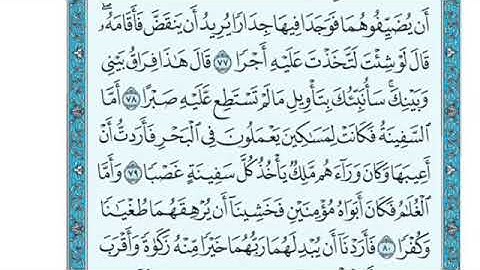 أَن يُضَيِّفُوهُمَا فَوَجَدَا فِيهَا جِدَارًا يُرِيدُ أَن يَنقَضَّ فَأَقَامَهُۥۖ
قَالَ لَوْ شِئْتَ لَتَّخَذْتَ عَلَيْهِ أَجْرًا ٧٧ قَالَ هَٰذَا فِرَاقُ بَيْنِي
وَبَيْنِكَۚ سَأُنَبِّئُكَ بِتَأْوِيلِ مَا لَمْ تَسْتَطِع عَّلَيْهِ صَبْرًا ٧٨ أَمَّا
السَّفِينَةُ فَكَانَتْ لِمَسَاكِينَ يَعْمَلُونَ فِي الْبَحْرِ فَأَرَدتُّ أَنْ
أَعِيبَهَا وَكَانَ وَرَآءَهُم مَّلِكٌ يَأْخُذُ كُلَّ سَفِينَةٍ غَصْبًا ٧٩ وَأَمَّا
الْغُلَٰمُ فَكَانَ أَبَوَاهُ مُؤْمِنَيْنِ فَخَشِينَآ أَن يُرْهِقَهُمَا طُغْيَٰنًا
وَكُفْرًا ٨٠ فَأَرَدْنَآ أَن يُبْدِلَهُمَا رَبُّهُمَا خَيْرًا مِّنْهُ زَكَوٰةً وَأَقْرَبَ